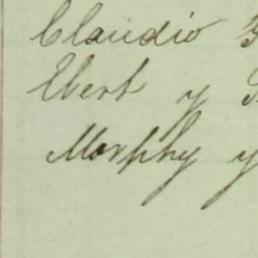 Claudio
Ebert y
Morphy y